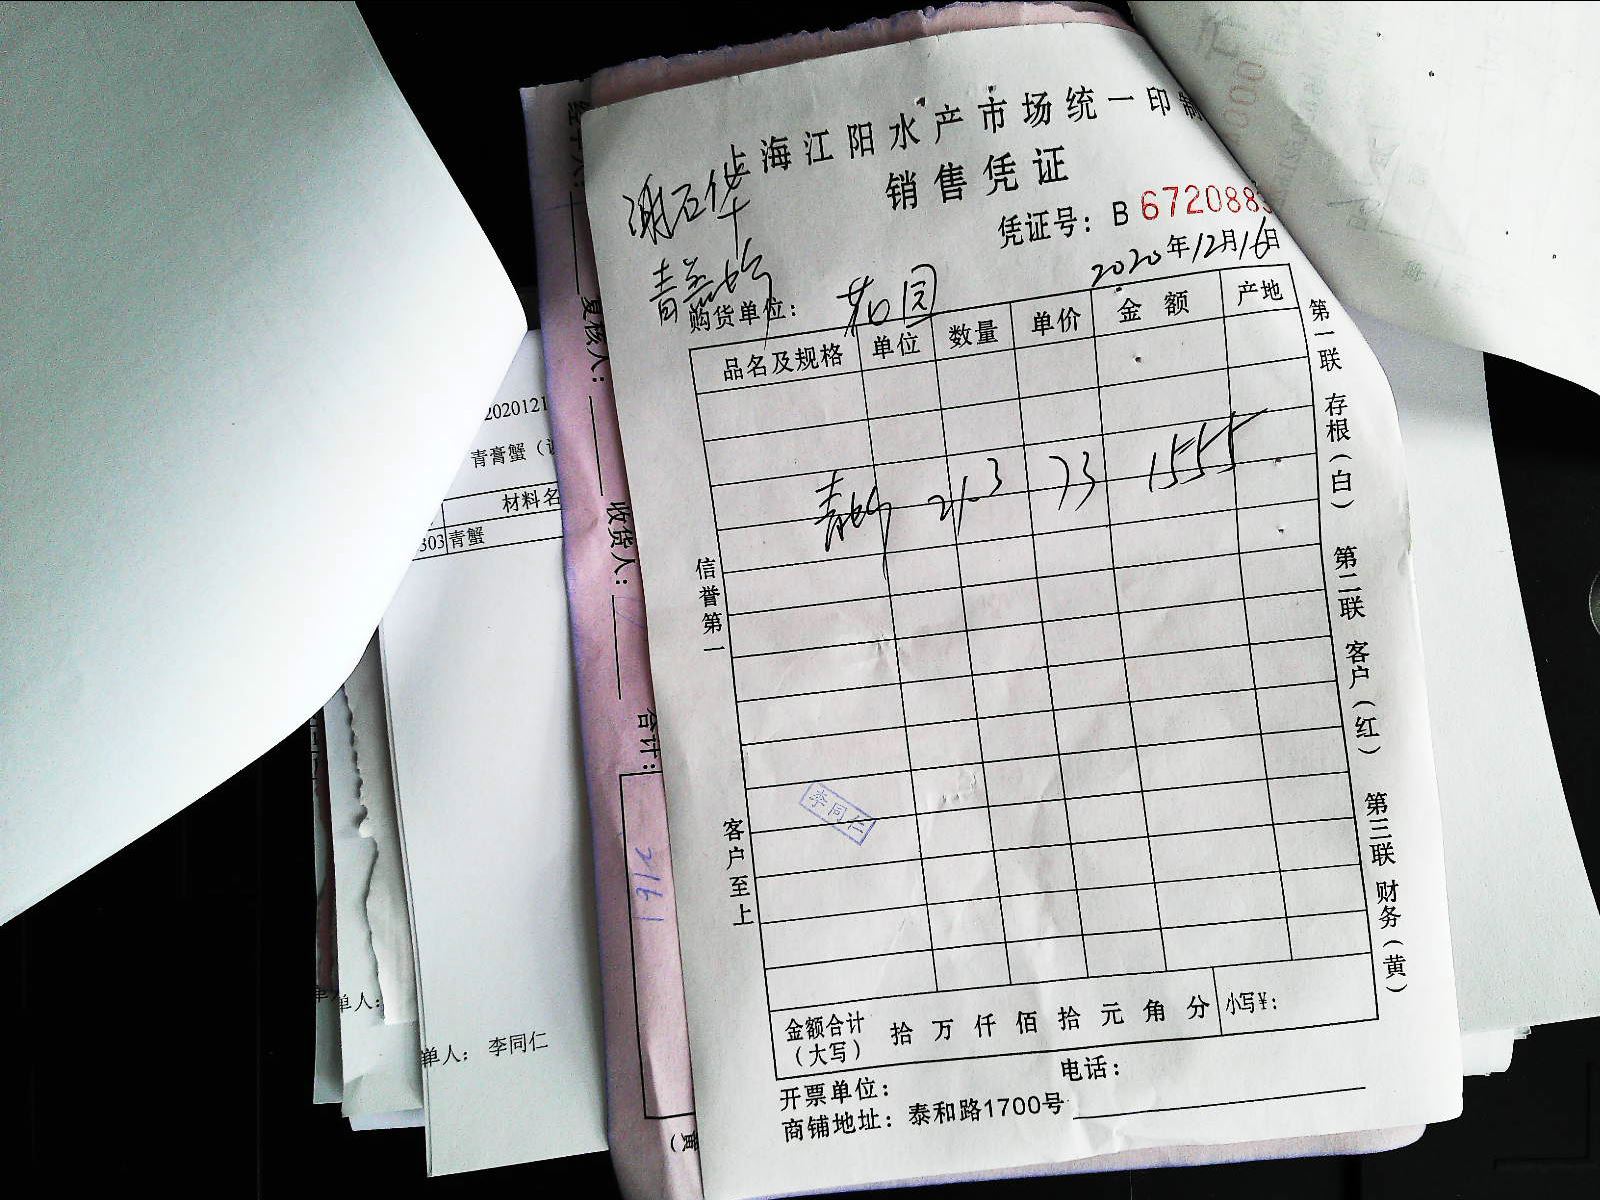 上海江阳水产市场统一印制
销售凭证
凭证号：B 672088
谢石华
2020年12月16日
购货单位：
品名及规格 单位 数量 单价 金额 产地
21.3 73 1555
信誉第一
客户至上
李同仁
第一联 存根（白） 第二联 客户（红） 第三联 财务（黄）
金额合计（大写） 拾 万 仟 佰 拾 元 角 分 小写¥：
开票单位： 电话：
商铺地址：泰和路1700号
复核人：
收货人：
合计：
2161
2020121
青膏蟹（
材料名
303 青蟹
单人：
单人： 李同仁